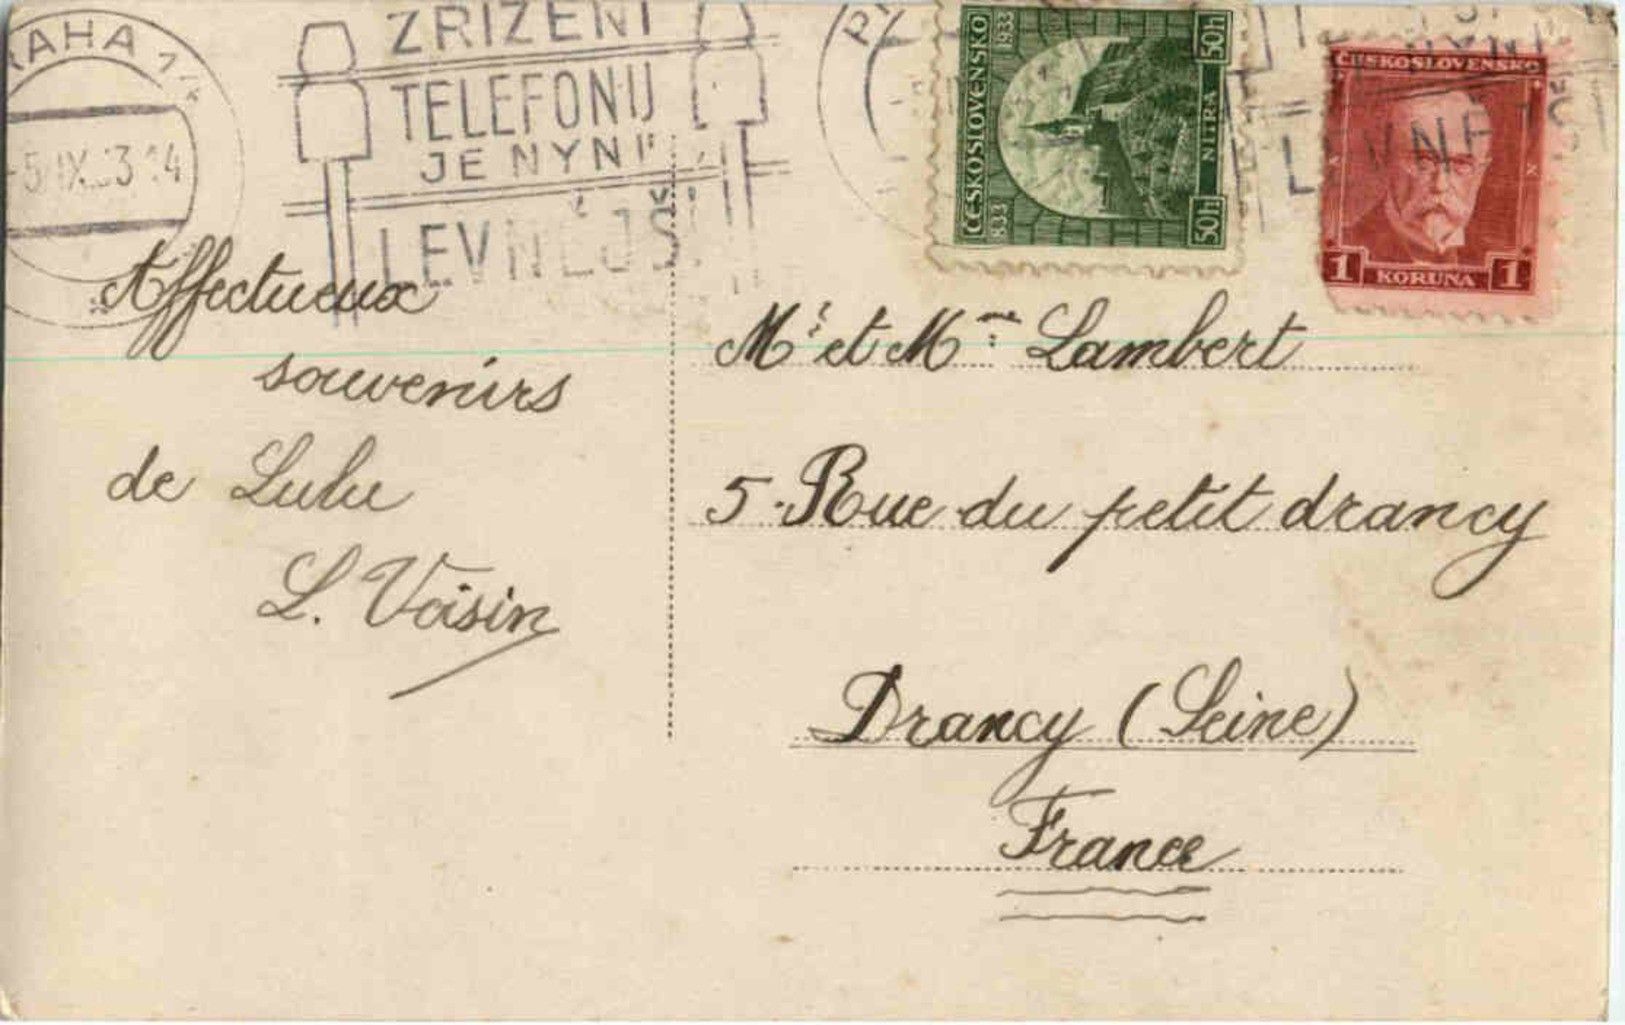 RAHA
ZŘÍZENÍ
TELEFONU
JE NYNÍ
LEVNĚJŠÍ
ČESKOSLOVENSKO
833
1933
NITRA
50h
50h
ČESKOSLOVENSKO
1 KORUNA 1
LEVNĚJŠÍ
Affectueux
souvenirs
de Lulu
L. Voisin
Mr et Mme Lambert
5. Rue du petit drancy
Drancy (Seine)
France